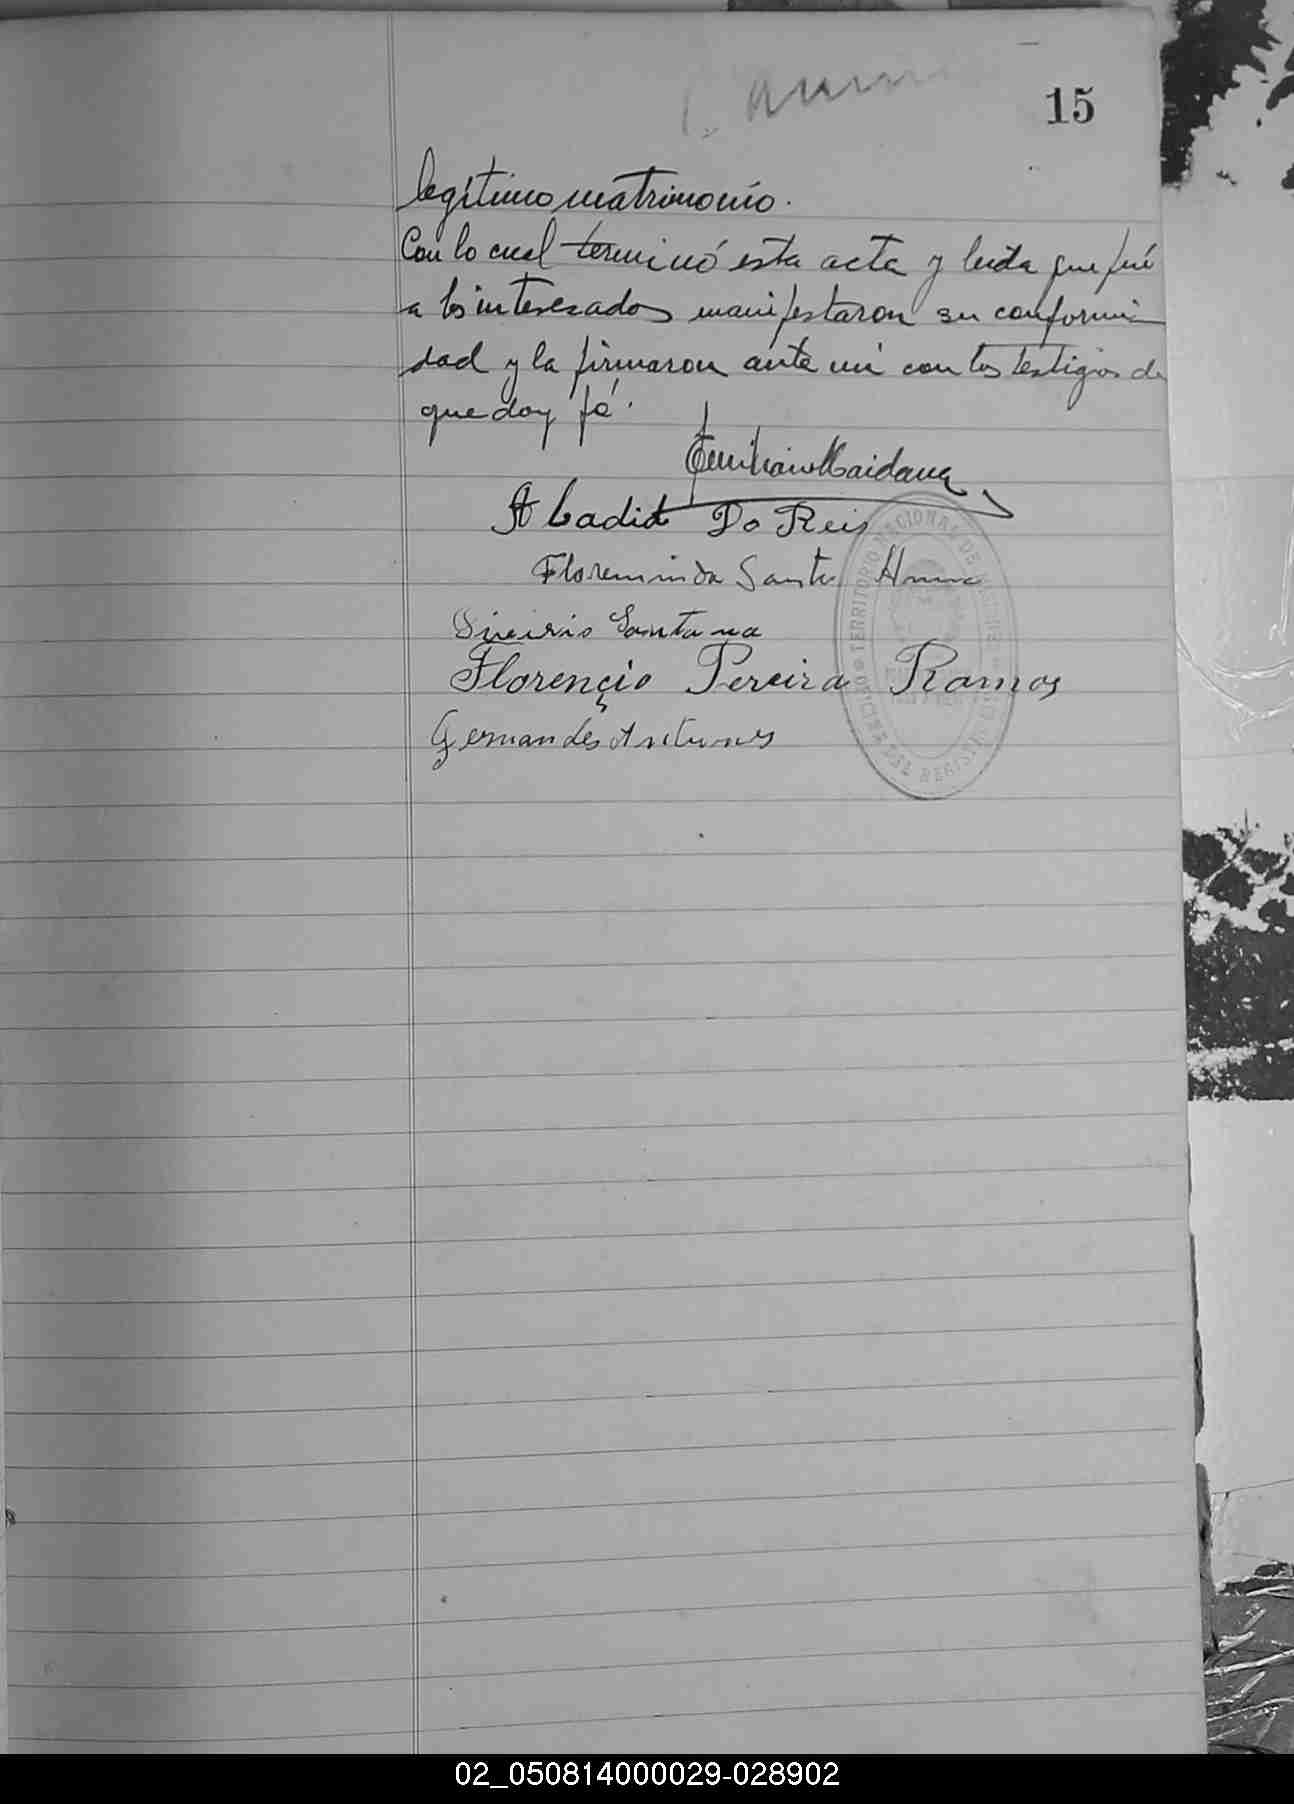 15
legítimo matrimonio.
Con lo cual terminó esta acta y leida que fué
a los interesados manifestaron su conformi
dad y la firmaron ante mi con los testigos de
que doy fé.
Emiliano Maidana
Abadid Do Reis
Floreninda Santa Anna
Santana
Florençio Pereira Ramos
Gernandes Antunes
TERRITORIO NACIONAL DE MISIONES
DEL REGISTRO
02_050814000029-028902